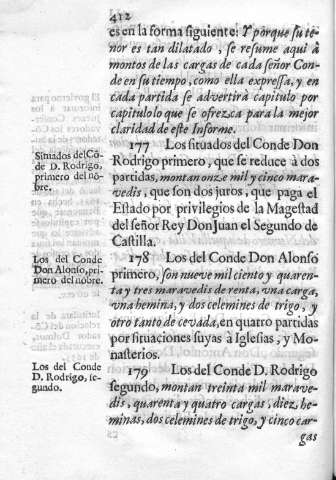 412
es en la forma siguiente: Y porque su te-
nor es tan dilatado, se resume aqui à
montos de las cargas de cada señor Con-
de en su tiempo, como ella expressa, y en
cada partida se advertirà capitulo por
capitulo lo que se ofrezca para la mejor
claridad de este Informe.
Situados del Cõ-
de D. Rodrigo,
primero del nõ-
bre.
177 Los situados del Conde Don
Rodrigo primero, que se reduce à dos
partidas, montan onze mil y cinco mara-
vedis, que son dos juros, que paga el
Estado por privilegios de la Magestad
del señor Rey Don Juan el Segundo de
Castilla.
Los del Conde
Don Alonso, pri-
mero del nõbre.
178 Los del Conde Don Alonso
primero, son nueve mil ciento y quaren-
ta y tres maravedis de renta, vna carga,
vna hemina, y dos celemines de trigo, y
otro tanto de cevada, en quatro partidas
por situaciones suyas à Iglesias, y Mo-
nasterios.
Los del Conde
D. Rodrigo, se-
gundo.
179 Los del Conde D. Rodrigo
segundo, montan treinta mil marave-
dis, quarenta y quatro cargas, diez he-
minas, dos celemines de trigo, y cinco car-
gas